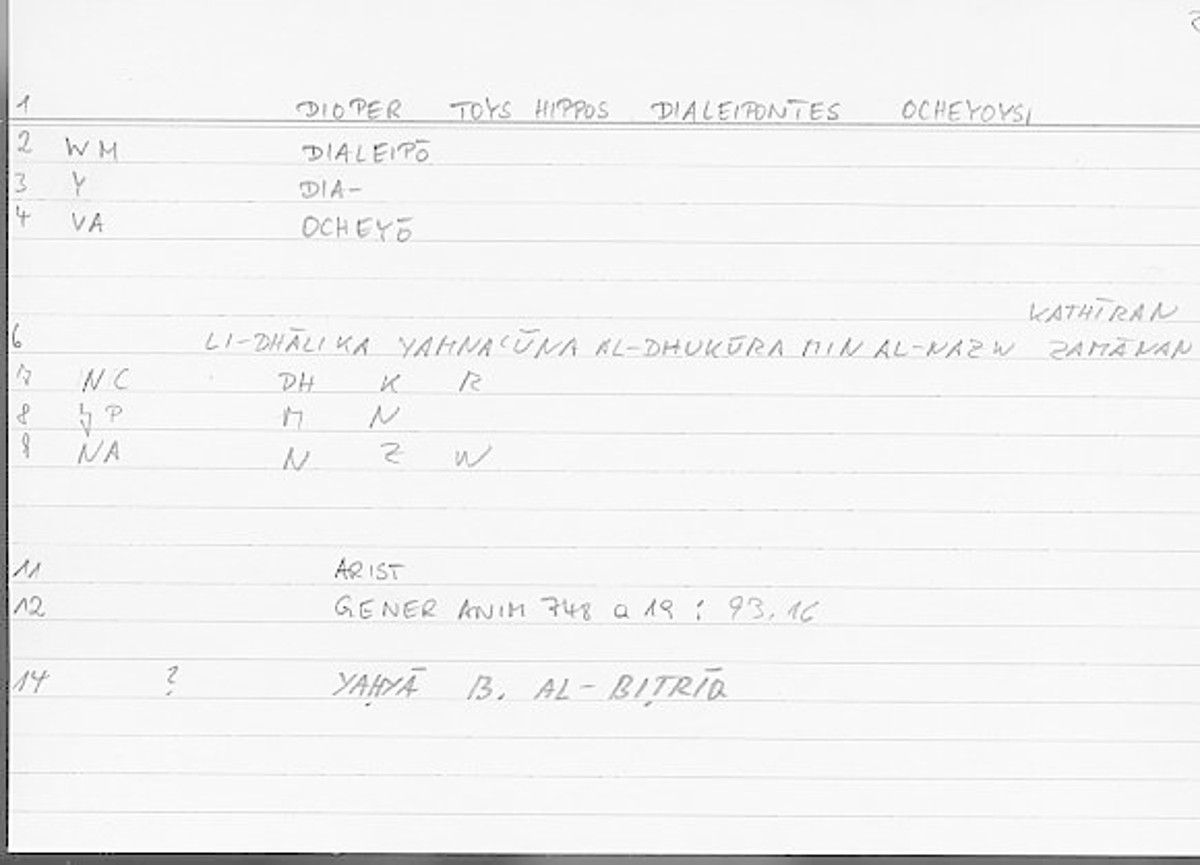 1 DIOPER TOYS HIPPOS DIALEIPONTES OCHEYOYSI
2 WM DIALEIPŌ
3 Y DIA-
4 VA OCHEYŌ
KATHĪRAN
6 LI-DHĀLIKA YAMNAʿŪNA AL-DHUKŪRA MIN AL-NAZW ZAMĀNAN
7 NC DH K R
8 P M N
9 NA N Z W
11 ARIST
12 GENER ANIM 748 a 19 : 93.16
14 ? YAḤYĀ B. AL-BIṬRĪQ